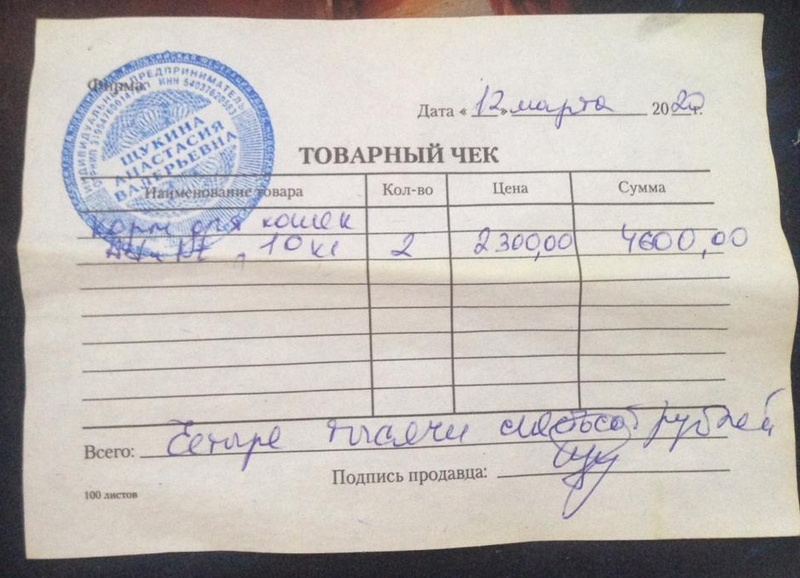 Фирма
ИНДИВИДУАЛЬНЫЙ ПРЕДПРИНИМАТЕЛЬ
ЩУКИНА
АНАСТАСИЯ
ВАЛЕРЬЕВНА
Дата «12» марта 2020г.
ТОВАРНЫЙ ЧЕК
Наименование товара Кол-во Цена Сумма
корм для кошек
10 кг 2 2300,00 4600,00
Всего: Четыре тысячи шестьсот рублей
Подпись продавца:
100 листов